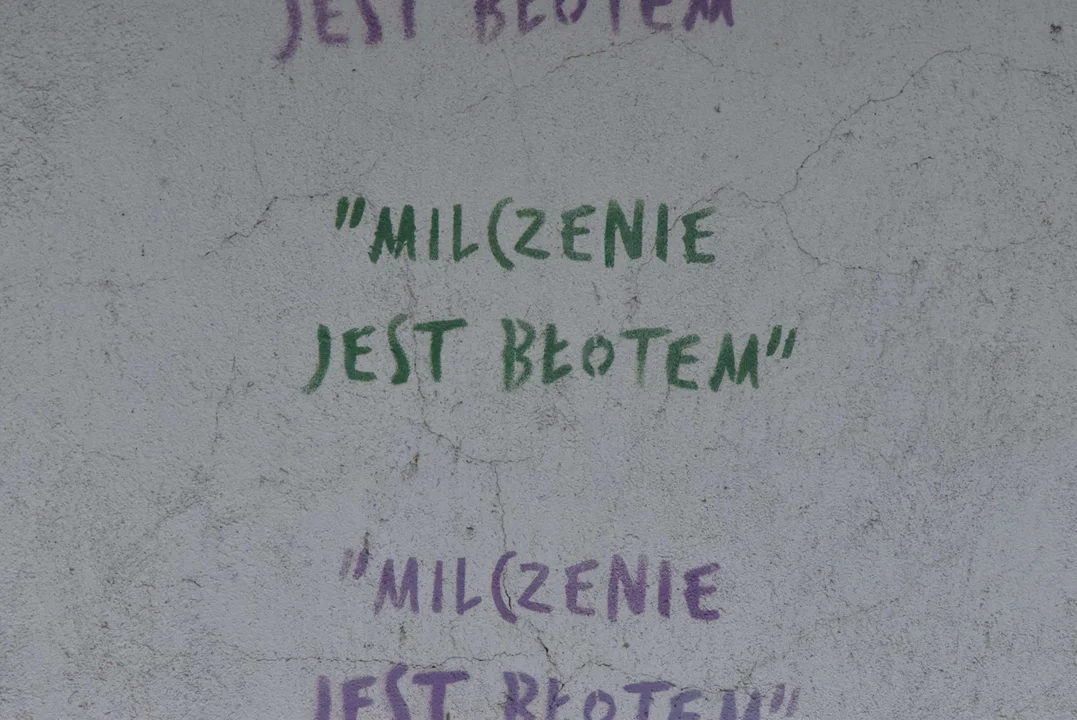 JEST BŁOTEM
"MILCZENIE
JEST BŁOTEM"
"MILCZENIE
JEST BŁOTEM"